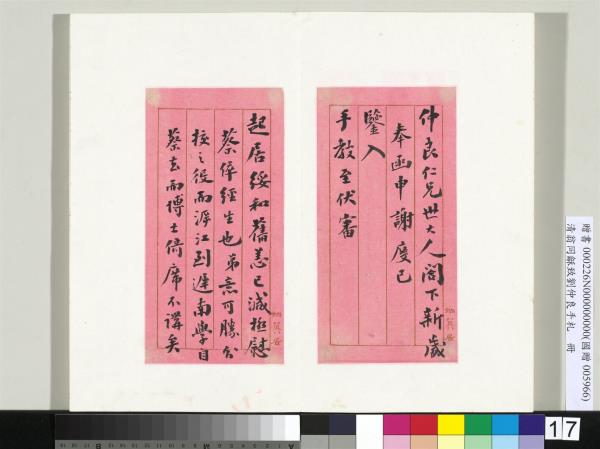 仲良仁兄世大人閣下新歲
奉函申謝度已
鑒入
手教至伏審
起居綏和舊恙已減極慰
蔡倅經生也弟意可勝分
校之役而浙江到遲南學自
蔡去而博士倚席不講矣
贈書 000226N000000000(國贈 005966)
清翁同龢致劉仲良手札 冊
17